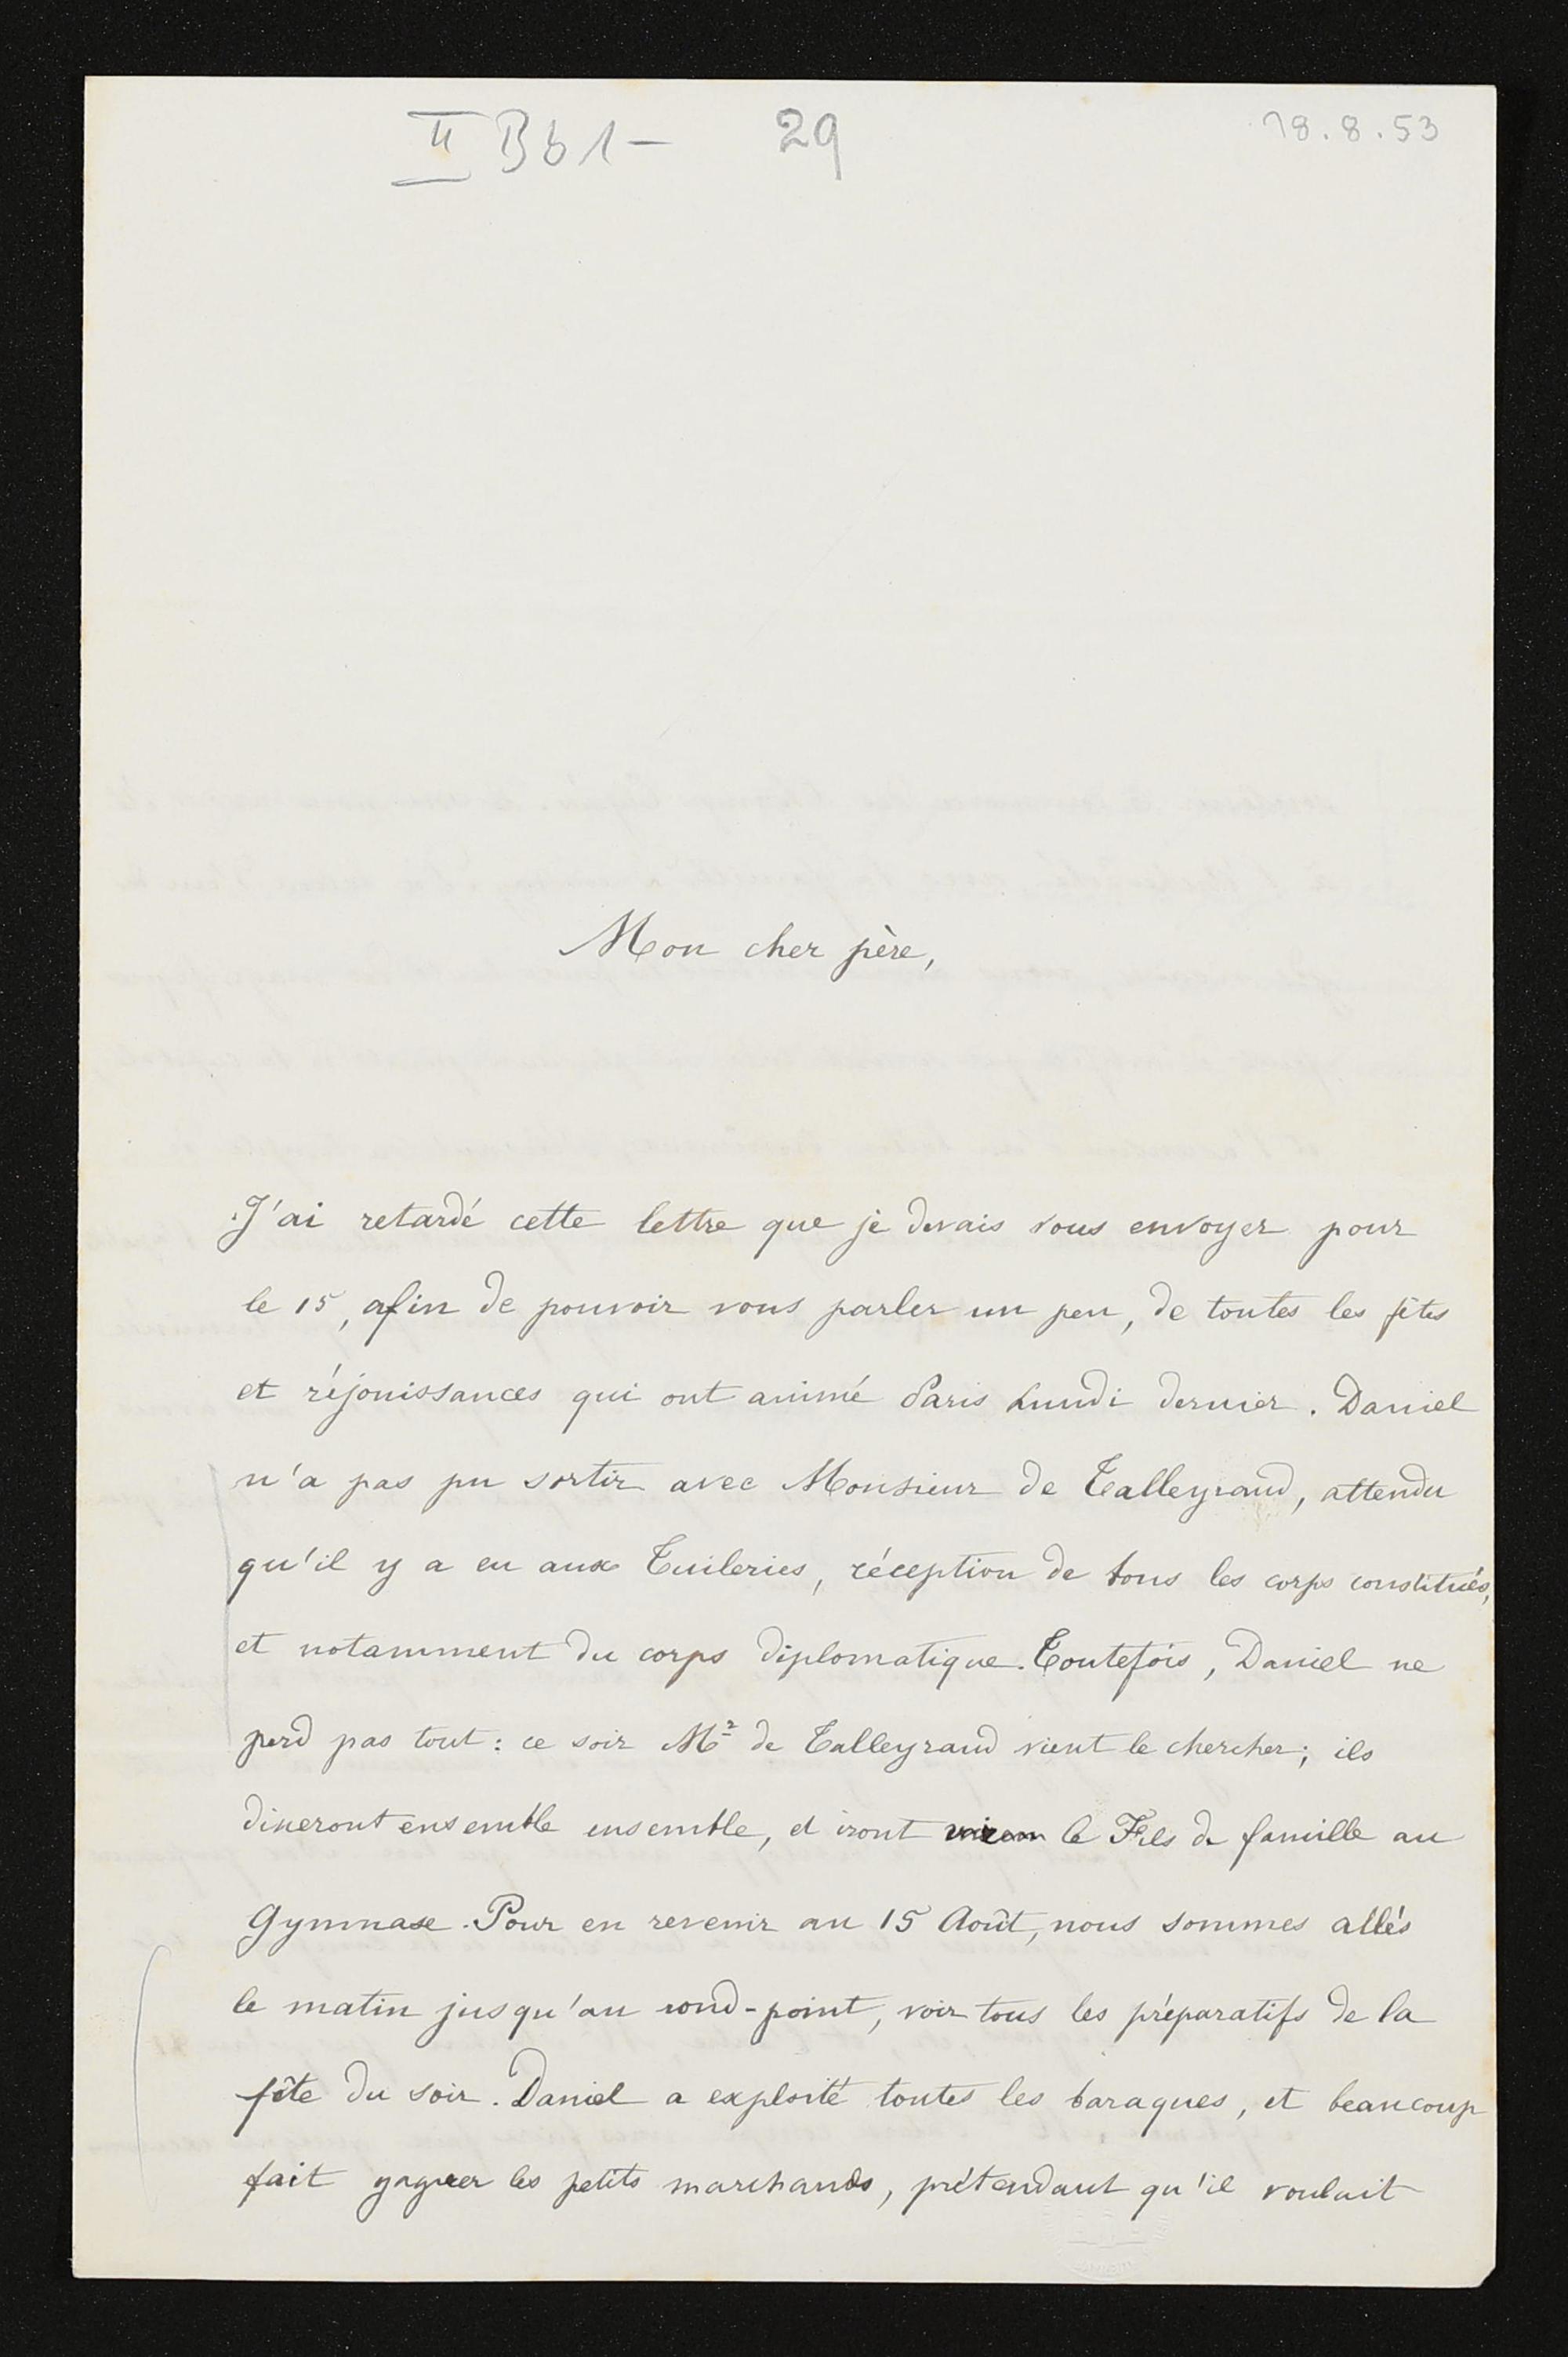 II Bb1- 29 18.8.53
Mon cher père,
J'ai retardé cette lettre que je devais vous envoyer pour
le 15, afin de pouvoir vous parler un peu, de toutes les fêtes
et réjouissances qui ont animé Paris Lundi dernier. Daniel
n'a pas pu sortir avec Monsieur de Talleyrand, attendu
qu'il y a eu aux Tuileries, réception de tous les corps constitués,
et notamment du corps diplomatique. Toutefois, Daniel ne
perd pas tout: ce soir Mr de Talleyrand vient le chercher; ils
dineront ensemble ensemble, et iront le Fils de famille au
Gymnase. Pour en revenir au 15 Août, nous sommes allés
le matin jusqu'au rond-point, voir tous les préparatifs de la
fête du soir. Daniel a exploité toutes les baraques, et beaucoup
fait gagner les petits marchands, prétendant qu'il voulait